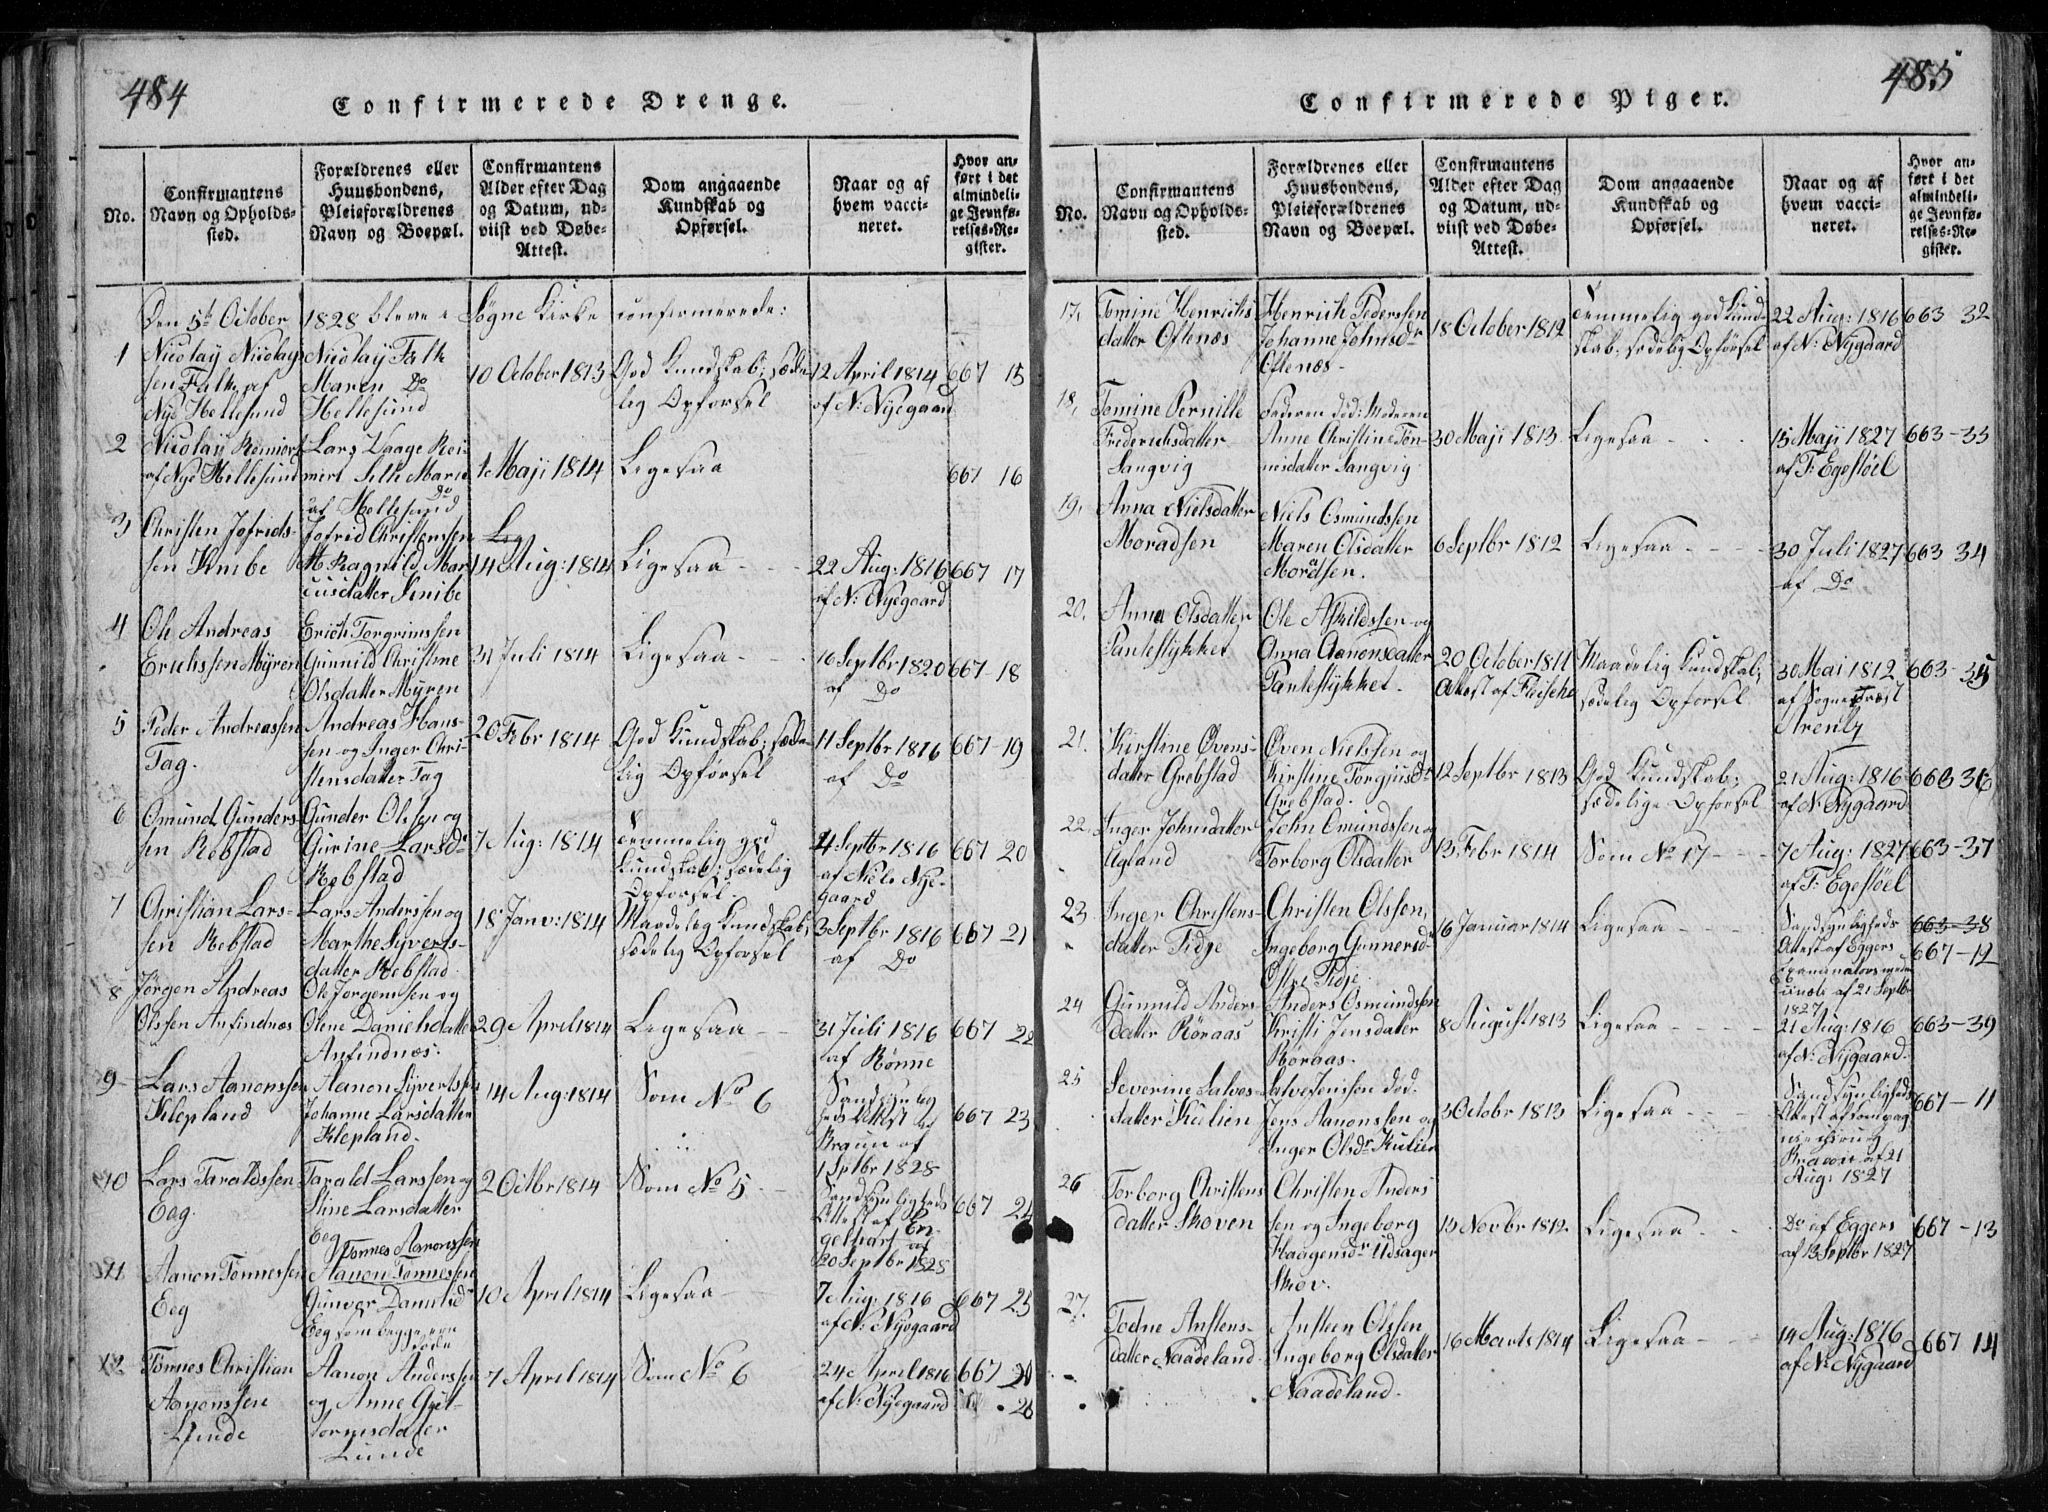 484
Confirmerede Drenge.
No.
Confirmantens Navn og Opholdssted.
Forældrenes eller Huusbondens, Pleieforældrenes Navn og Boepæl.
Confirmantens Alder efter Dag og Datum, udviist ved Døbe-Attest.
Dom angaaende Kundskab og Opførsel.
Naar og af hvem vaccineret.
Hvor anført i det almindelige Jevnførelses-Register.
Den 5te October 1828 bleve i Søgne Kirke confirmerede:
1 Nicolay Nicolaysen Falk af Nye Hellesund
Nicolay Falk Maren Do Hellesund
10 October 1813
God Kundskab; sædelig Opførsel
12 April 1814 af N: Nyegaard
667 15
2 Nicolay Reimert af Nye Hellesund
Lars Vaage Reimert Sille Marie Do af Hellesund
1 Maji 1814
Ligesaa
667 16
3 Christen Jofridssen Knibe
Jofrid Christenssen Ragnild Marcusdatter Knibe
14 Aug: 1814
Ligesaa
22 Aug: 1816 af N: Nyegaard
667 17
4 Ole Andreas Erichssen Myren
Erich Torgrimssen Gunnild Christine Olsdatter Myren
31 Juli 1814
Ligesaa
16 Septbr 1820 af Do
667 18
5 Peder Andreassen Tag.
Andreas Hanssen og Inger Christensdatter Tag
20 Febr 1814
God Kundskab; sædelig Opførsel
11 Septbr 1816 af Do
667 19
6 Omund Gunderssen Rebstad
Gunder Olssen og Gurine Larsdr Rebstad
7 Aug: 1814
Temmelig god Kundskab; sædelig Opførsel
4 Septbr 1816 af Niels Nyegaard
667 20
7 Christian Larssen Rebstad
Lars Anderssen og Marthe Syvertsdatter Rebstad
18 Janv: 1814
Maadelig Kundskab; sædelig Opførsel
3 Septbr 1816 af Do
667 21
8 Jørgen Andreas Olssen Anfindnæs
Ole Jørgenssen og Olene Danielsdatter Anfindnæs.
29 April 1814
Ligesaa
31 Juli 1816 af Rønne
667 22
9 Lars Aanonssen Klepland
Aanon Syvertssen Johanne Larsdatter Klepland.
14 Aug: 1814
Som No 6
Sandsynligheds Attest af Braun af 1 Sptbr 1828
667 23
10 Lars Taraldssen Eeg.
Tarald Larssen og Stine Larsdatter Eeg
2 Octbr 1814
Som No 5
Sandsynligheds Attest af Engelhart af 20 Septbr 1828
667 24
11 Aanon Tønnessen Eeg
Tønnes Aanonssen Aanon Tønnessen Gunver Danielsdr Eeg som begge ere døde
10 April 1814
Ligesaa
7 Aug: 1816 af N: Nyegaard
667 25
12 Tønnes Christian Aanonssen Lunde
Aanon Anderssen og Anne Gjertormsdatter Lunde
7 April 1814
Som No 6
24 April 1816 af N: Nyegaard
667 26
485
Confirmerede Piger.
No.
Confirmantens Navn og Opholdssted.
Forældrenes eller Huusbondens, Pleieforældrenes Navn og Boepæl.
Confirmantens Alder efter Dag og Datum, udviist ved Døbe-Attest.
Dom angaaende Kundskab og Opførsel.
Naar og af hvem vaccineret.
Hvor anført i det almindelige Jevnførelses-Register.
17, Tomine Henrichsdatter Oftenæs
Henrich Pederssen Johanne Johnsdr Oftenæs.
18 October 1812
Temmelig god Kundskab; sædelig Opførsel
22 Aug: 1816 af N: Nygaard
663 32
18, Tomine Pernille Frederichsdatter Sangvig
Faderen død: Moderen Anne Christine Tønnisdatter Sangvig
30 Maji 1813
Ligesaa
15 Maji 1827 af T: Egestøel
663-33
19, Anna Nielsdatter Moradsen
Niels Osmundssen Maren Olsdatter Moradsen.
6 Septbr 1812
Ligesaa
30 Juli 1827 af Do
663 34
20, Anna Olsdatter Pantestykket
Ole Askildssen og Anna Aanonsdatter Pantestykket.
20 October 1811 Attest af Fleische
Maadelig Kundskab; sædelig Opførsel
30 Mai 1812 af Sognepræst Arentz
663-35
21. Kirstine Øvensdatter Grebstad
Øven Nielssen og Kirstine Torgiusdr Grebstad.
12 Septbr 1813
God Kundskab; sædelige Opførsel
21 Aug: 1816 af N: Nygaard
663 36
22. Inger Johnsdatter Agland
John Omundssen og Torborg Olsdatter
13 Febr 1814
Som No 17
7 Aug: 1827 af T: Egestøel
663-37
23 Inger Christensdatter Tidje
Christen Olssen, Ingeborg Gunnersdr Østre Tidje
16 Januar 1814
Ligesaa
Sandsynligheds Attest af Eggers af 21 Septbr 1827
663-38
667-12
24 Gunnild Andersdatter Røraas
Anders Osmundssen Kristi Jensdatter Røraas.
8 August 1813
Ligesaa
21 Aug: 1816 af N: Nygaard.
663-39
25 Severine Salvesdatter Kulien
Salve Jenssen død. Jens Aanonssen og Inger Olsdr Kulien
3 Octobr 1813
Ligesaa
Sandsynligheds Attest af Compagniechirurg Braun af 21 Aug: 1827
667-11
26 Torborg Christensdatter Skoven
Christen Anderssen og Ingeborg Haagensdr Udsager Skov.
13 Novbr 1812
Ligesaa
Do af Eggers af 13 Septbr 1827
667-13
27. Todne Anstensdatter Naadeland.
Ansteen Olssen Ingeborg Olsdatter Naadeland.
16 Marts 1814
Ligesaa
14 Aug: 1816 af N: Nygaard
667 14